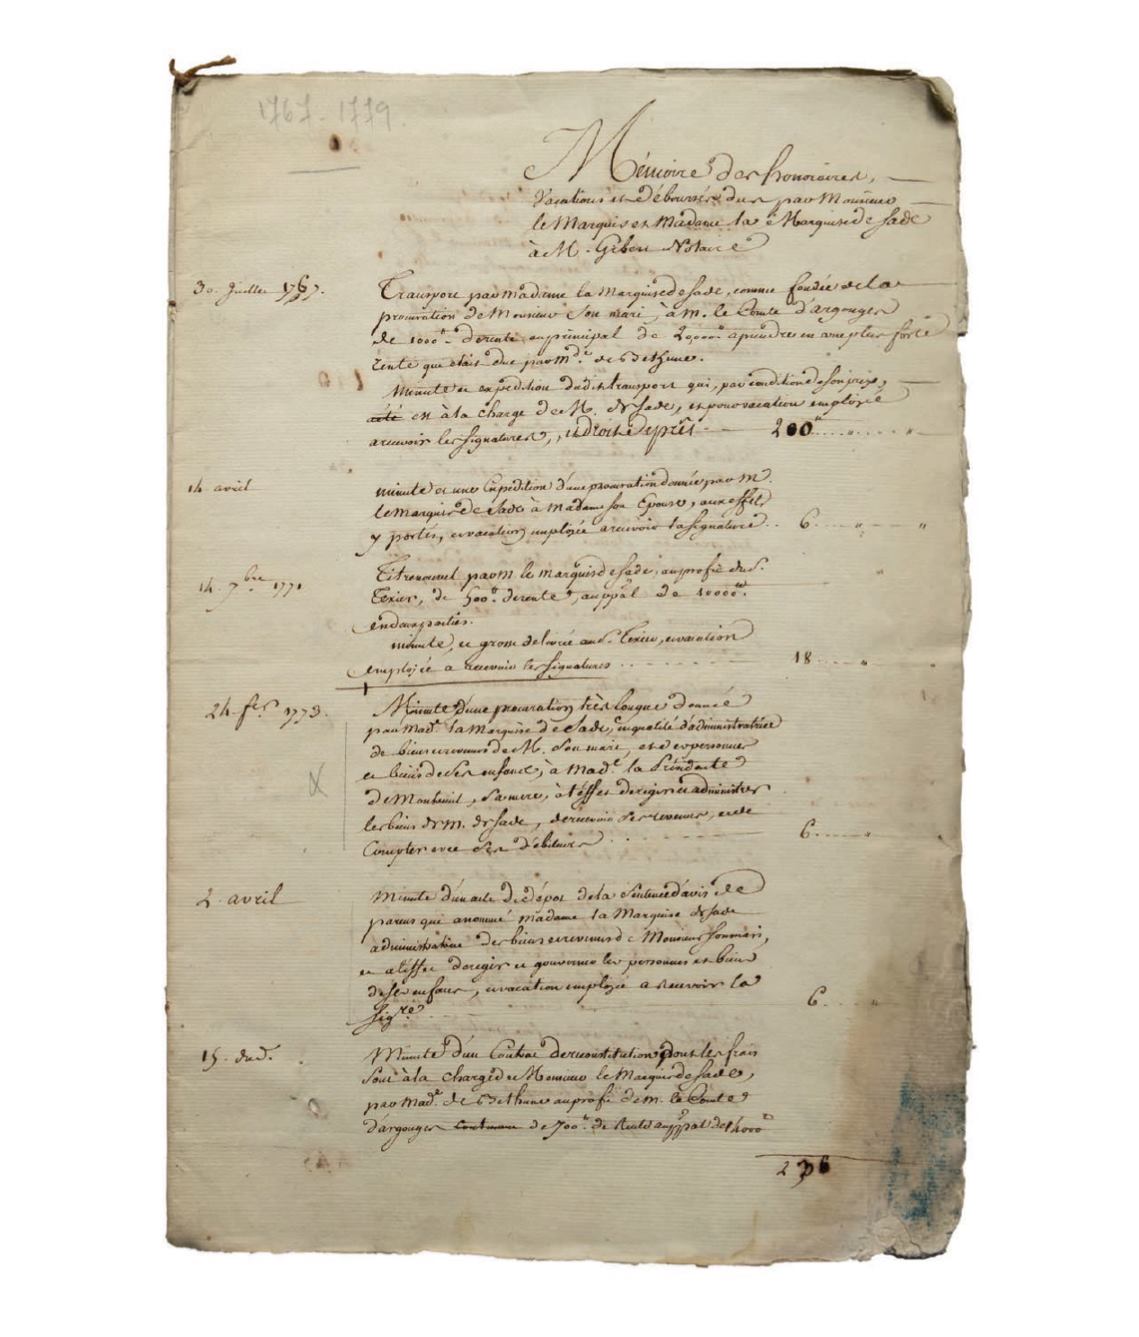 1767-1779.
Mémoire des honoraires,
Vacations et débourses dus par Monsieur
le Marquis et Madame la Marquise de Sade
à M. Gibert Notaire
30. Juillet 1767.
Transport par Madame la Marquise de Sade, comme fondée de la
procuration de Monsieur son mari, à M. le Comte d'argouges
de 1000tt de rente, au principal de 20000tt à prendre en une plus forte
rente qui était due par Md.e de Bethune.
Minute et expédition dudit transport qui, par condition
est à la charge de M. de Sade, et pour vacation employée
à recevoir les signatures, 200tt
14 avril
minute et une Expédition d'une procuration donnée par M.
le Marquis de Sade à Madame son Epouse, aux effets
y portés, et vacation employée à recevoir la signature .. 6
14. 7bre 1771
Titre nouvel par M. le Marquis de Sade, au profit du S.
Texier, de 500tt de rente, au ppal de 10000tt
en deux parties.
minute, et grosse délivrée au S. Texier, et vacation
employée à recevoir les signatures 18
24. fer. 1773.
Minute d'une procuration très longue donnée
par Mad.e la Marquise de Sade, en qualité d'administratrice
de biens et revenus de M. son mari, et des personnes
et biens de ses enfans, à Mad.e la Présidente
de Montreuil, sa mere, à l'effet de régir et administrer
les biens de M. de Sade, de recevoir ses revenus, et de
Compter avec ses débiteurs 6
2 avril
Minute d'un acte de dépot de la Sentence d'avis de
parens qui a nommé Madame la Marquise de Sade
administratrice des biens et revenus de Monsieur son mari,
et à l'effet de régir et gouverner les personnes et biens
de ses enfans, et vacation employée à recevoir la
sigre 6
15. dud.
Minute d'un Contrat de reconstitution dont les frais
sont à la charge de Monsieur le Marquis de Sade,
par Mad.e de Bethune au profit de M. le Comte
d'argouges de 700tt de Rente au ppal de 14000tt
236